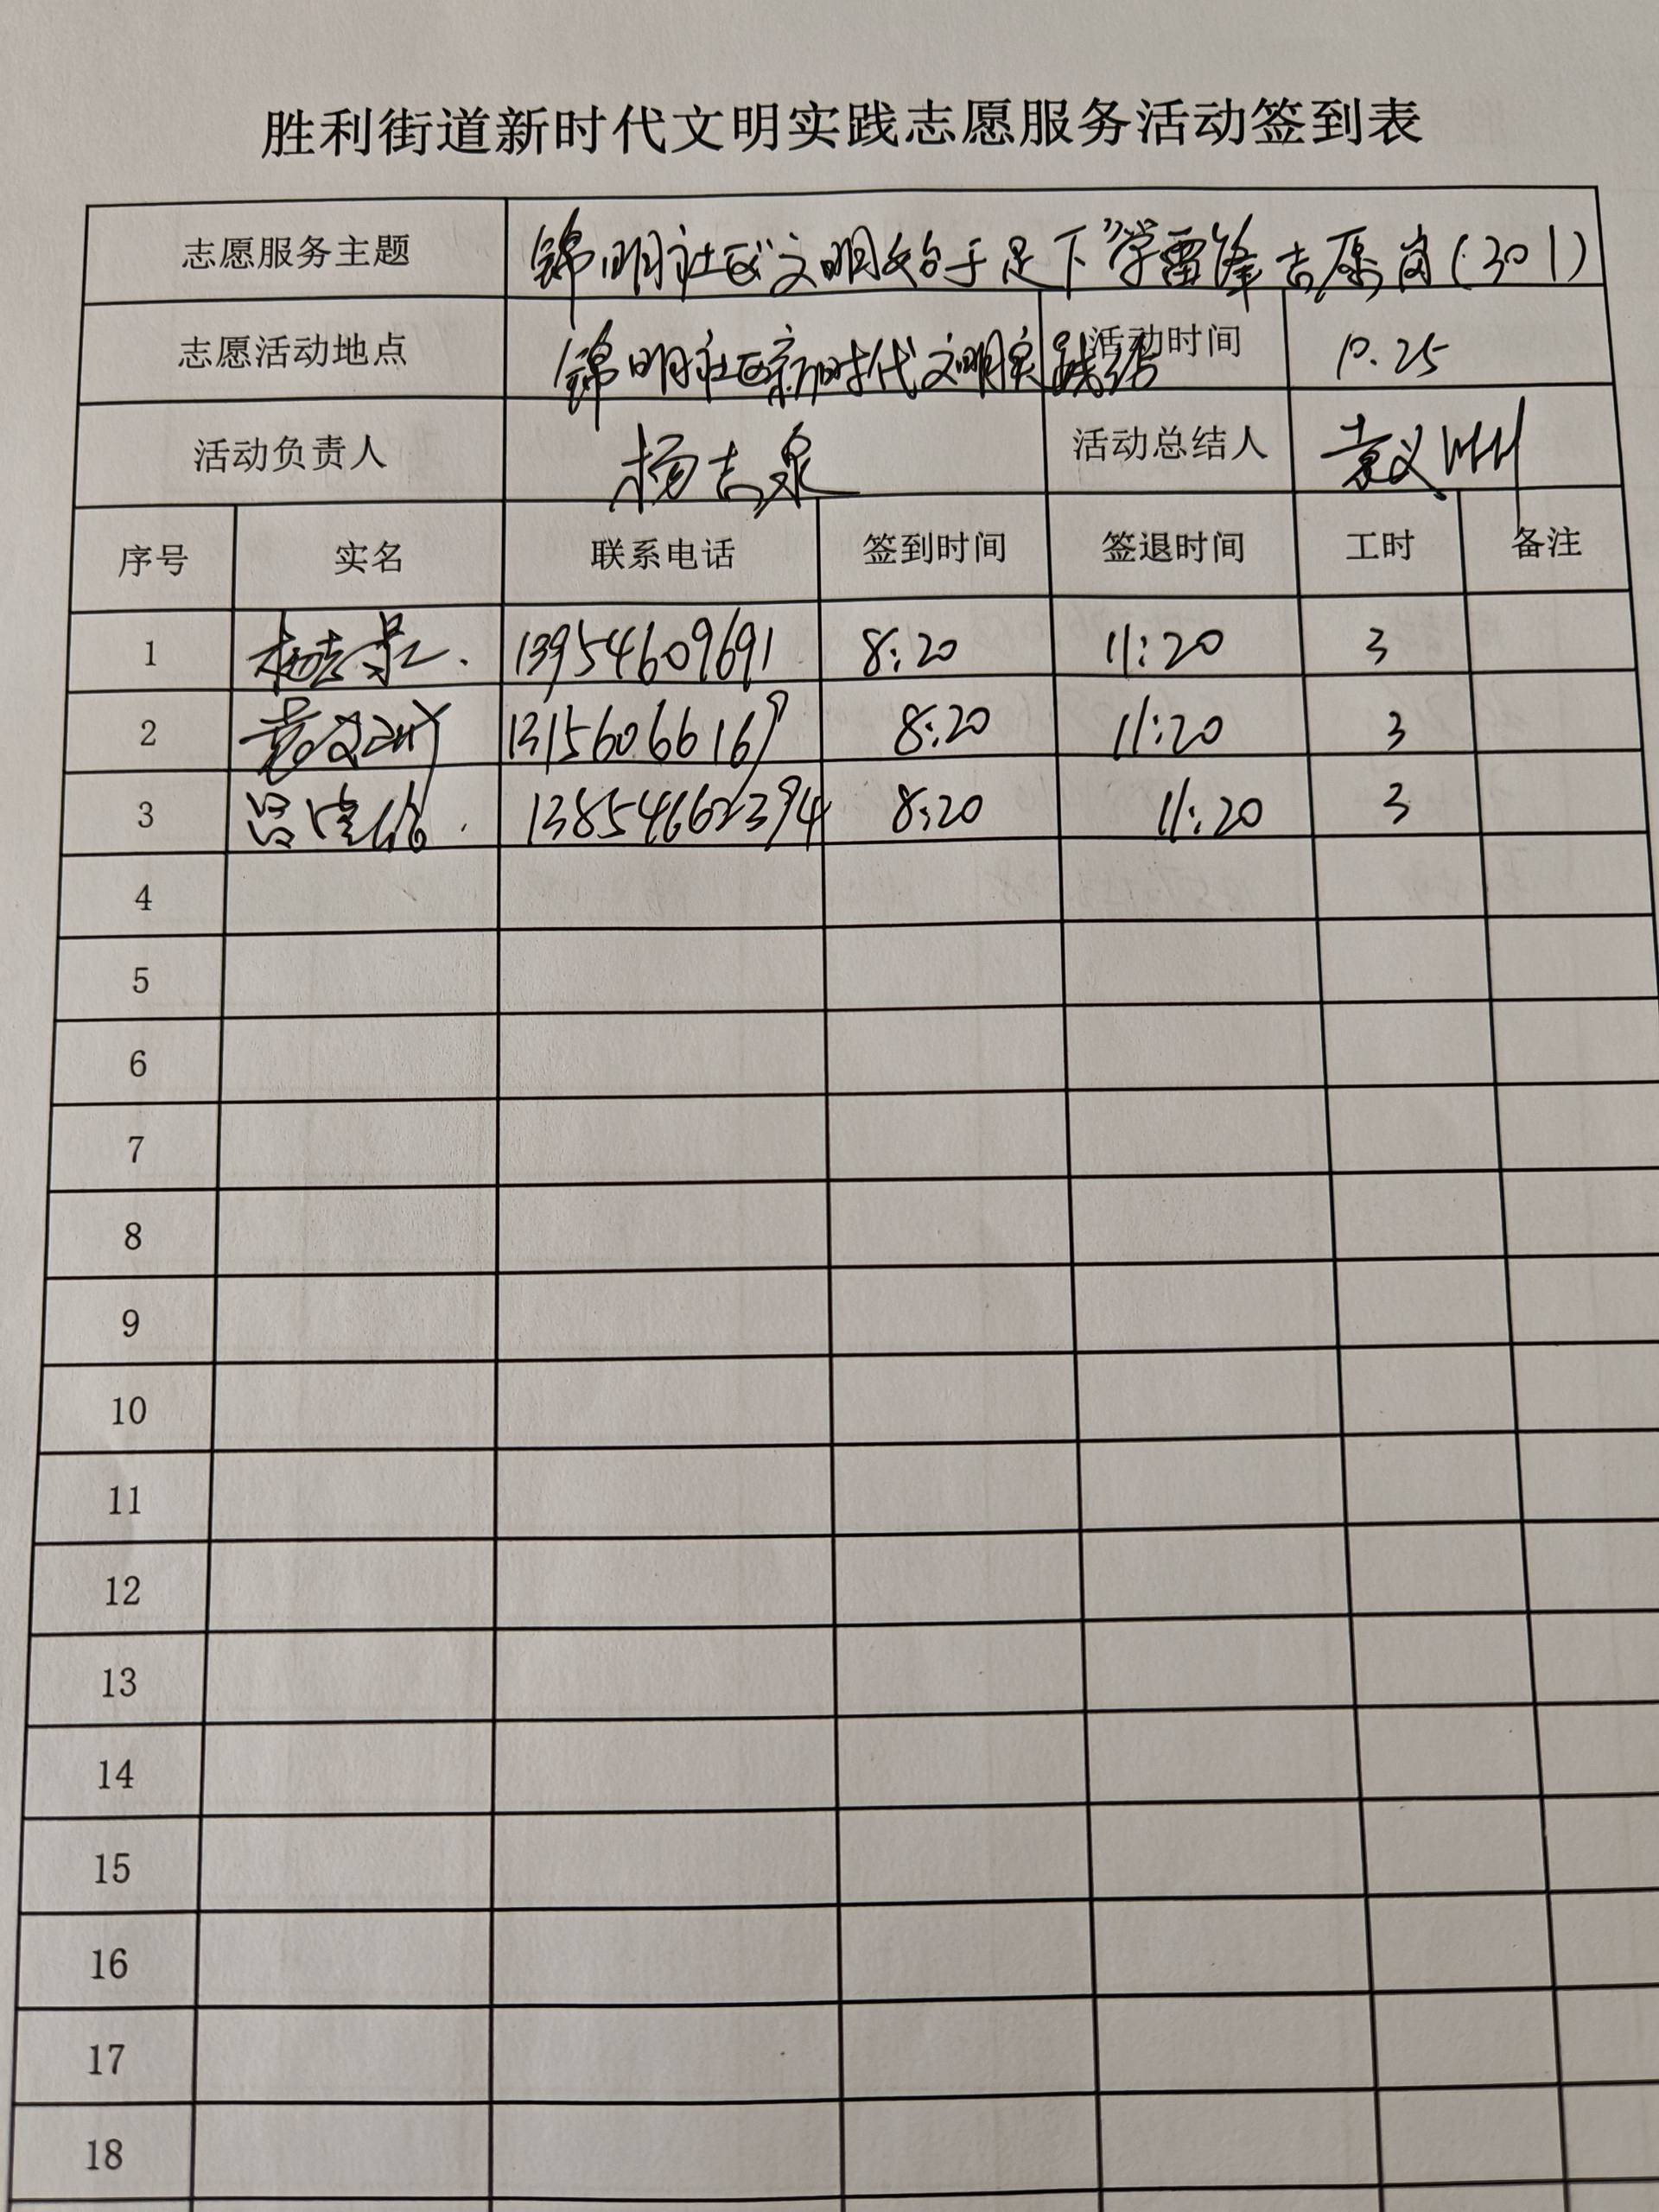 胜利街道新时代文明实践志愿服务活动签到表
志愿服务主题 锦明社区"文明始于足下"学雷锋志愿岗(301)
志愿活动地点 锦明社区新时代文明实践站 活动时间 10.25
活动负责人 杨志泉 活动总结人 袁义州
序号 实名 联系电话 签到时间 签退时间 工时 备注
1 杨志泉 13954609691 8:20 11:20 3
2 袁义州 13156066169 8:20 11:20 3
3 吕 13854662394 8:20 11:20 3
4
5
6
7
8
9
10
11
12
13
14
15
16
17
18